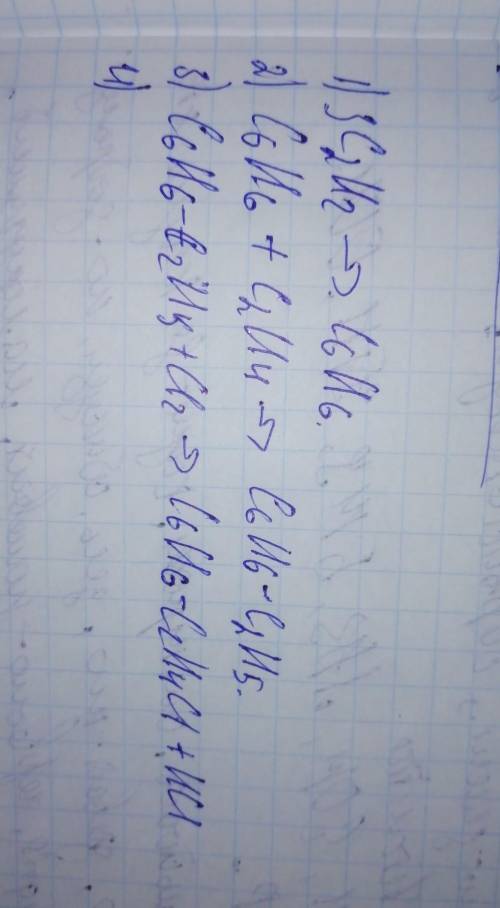 1) 3C₂H₂ → C₆H₆.
2) C₆H₆ + C₂H₄ → C₆H₆-C₂H₅.
3) C₆H₆-C₂H₅ + Cl₂ → C₆H₆-C₂H₄Cl + HCl
4)